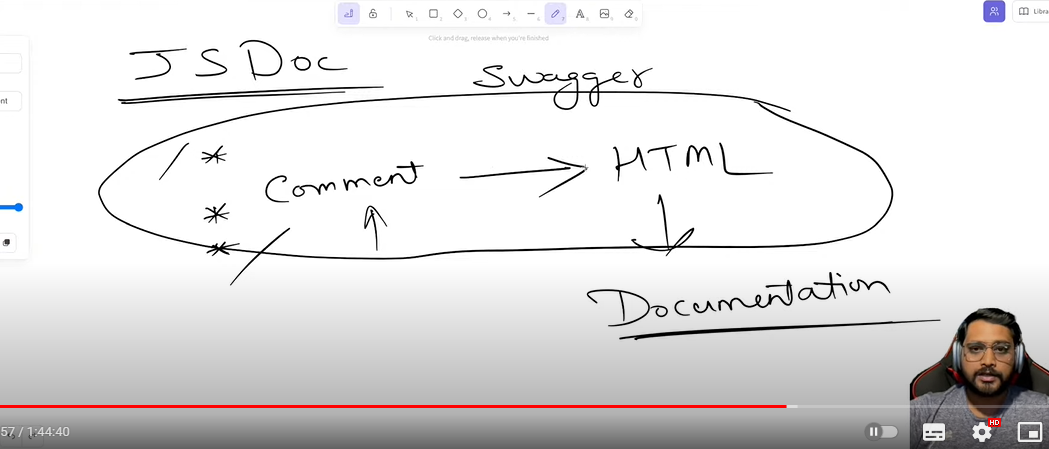 Libra
Click and drag, release when you're finished
nt
JSDoc
Swagger
/*
Comment → HTML
*
*/
Documentation
57 / 1:44:40
HD